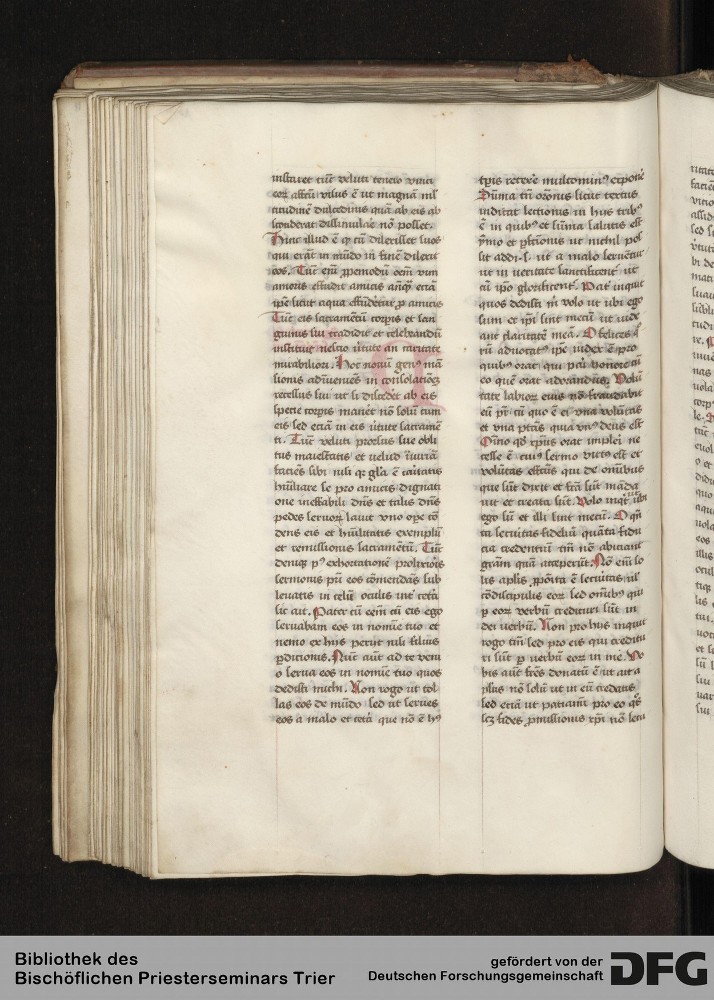 instaret tunc veluti tenero vinci
eorum affectu visus ē ut magnā
titudinē dulcedinis quā ab eis
sconderat dissimulare nō posset.
Hinc illud ē qͥ cū dilexisset suos
qui erāt in mūdo in finē dilexit
eos. Tūc em̄ ꝓpemodū oēm vim
amoris effudit amicis anteqͣ̄ et
ipse sicut aqua effūderetur ꝓ amicis
Tūc eis sacramētū corporis et san
guinis sui tradidit et celebrandū
instituit nescio virtute an caritate
mirabiliori. Hoc nouū genus mā
sionis adinueniēs in consolacioneꝫ
recessus sui ut si discederet ab eis
specie corporis maneret nō solū cum
eis sed etiā in eis virtute sacramē
ti. Tūc veluti prorsus sue obli
tus maiestatis et velud iniuriā
faciēs sibi nisi qꝫ gloria ē caritatis
humiliare se pro amicis dignati
one ineffabili dn̄s et talis dn̄s
pedes seruoꝝ lauit vno opere cō
dens eis et humilitatis exemplū
et remissionis sacramētū. Tūc
deniqꝫ post exhortationē prolixioris
sermonis patri eos cōmendās sub
leuatis in celū oculis inter cetera
sic ait. Pater cū essem cū eis ego
seruabam eos in nomine tuo et
nemo ex hijs perijt nisi filius
ꝑditionis. Nūc aūt ad te veni
o serua eos in nomine tuo quos
dedisti michi. Non rogo ut tol
las eos de mūdo sed ut serues
eos a malo et cetera que nō ē
temporis retexere exponere
Sūma tn̄ oronis sicut textus
indicat lectionis in hijs tribus
ē in quibus et sūma salutis est
ymo et ꝑfectionis ut nichil pos
sit addi .s. ut a malo seruētur
ut in veritate sanctificentur ut
cū ipō glorificent. Pater inquit
quos dedisti m̄ volo ut ubi ego
sum et ip̄i sint mecū ut vide
ant claritatē meā. O felices
rū aduocatus ipse iudex ē pro
quibus orat qui pari honore cū
eo quē orat adorandus. Volū
tate labior eius nō fraudabit
eū pater cū quo ē ei vna volūtas
et vna ptās quia vnus deus est
Omne qd̄ xpūs orat impleri ne
cesse ē cuius sermo virtus est et
volūtas effectus qui de omnibus
que sūt dixit et facta sūt māda
uit et creata sūt. Volo inquit ut ubi
ego sū et illi sint mecū. O qn̄
ta securitas fideliū quāta fidu
cia credentiū tm̄ nō abiciant
gratiam quā acceperūt. Nō em̄ so
lis apl̄is ꝓposita ē securitas vel
cōdiscipulis eoꝝ sed omnibus qui
ꝑ eoꝝ verbū credituri sūt in
dei verbū. Non pro hijs inquit
rogo tm̄ sed pro eis qui creditu
ri sūt ꝑ verbū eoꝝ in me. Vo
bis aūt fratres donatū ē ut ait a
postolus nō solū ut in eū credatis
sed etiā ut patiamī pro eo
scꝫ fides ꝓmissionis xpi nō
Bibliothek des
Bischöflichen Priesterseminars Trier
gefördert von der
Deutschen Forschungsgemeinschaft
DFG